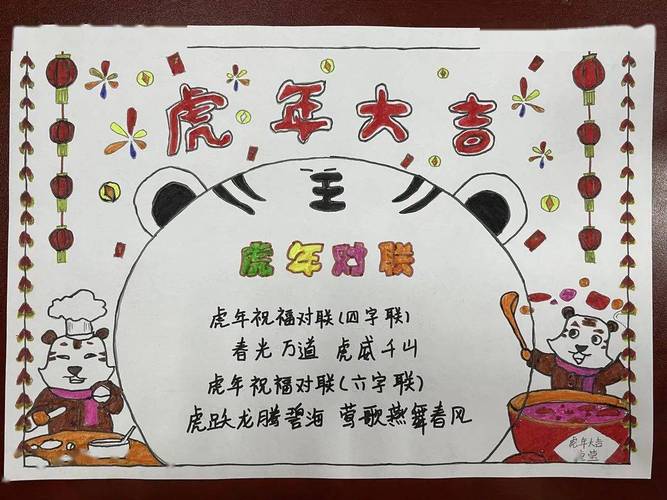 虎年大吉
王
虎年对联
虎年祝福对联(四字联)
春光万道 虎威千山
虎年祝福对联(六字联)
虎跃龙腾碧海 莺歌燕舞春风
虎年大吉